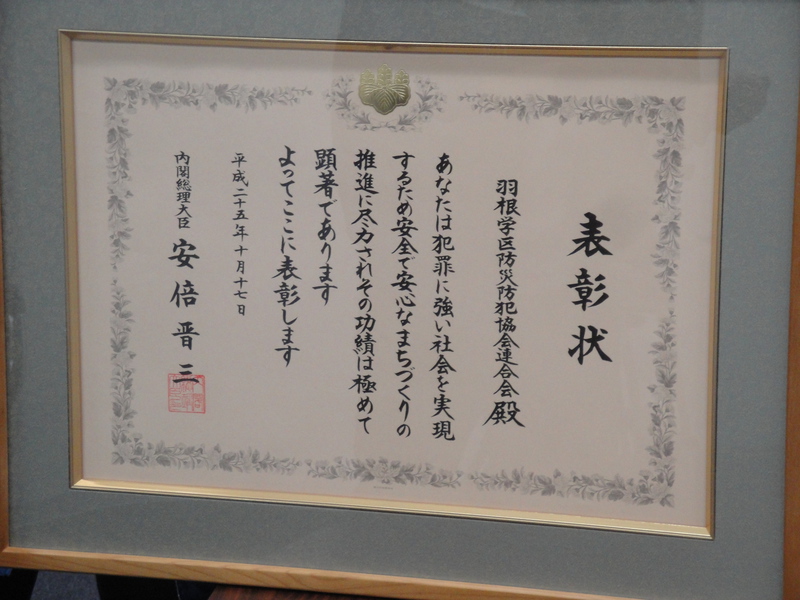 表彰状
羽根学区防災防犯協会連合会殿
あなたは犯罪に強い社会を実現
するため安全で安心なまちづくりの
推進に尽力されその功績は極めて
顕著であります
よってここに表彰します
平成二十五年十月十七日
内閣総理大臣 安倍晋三